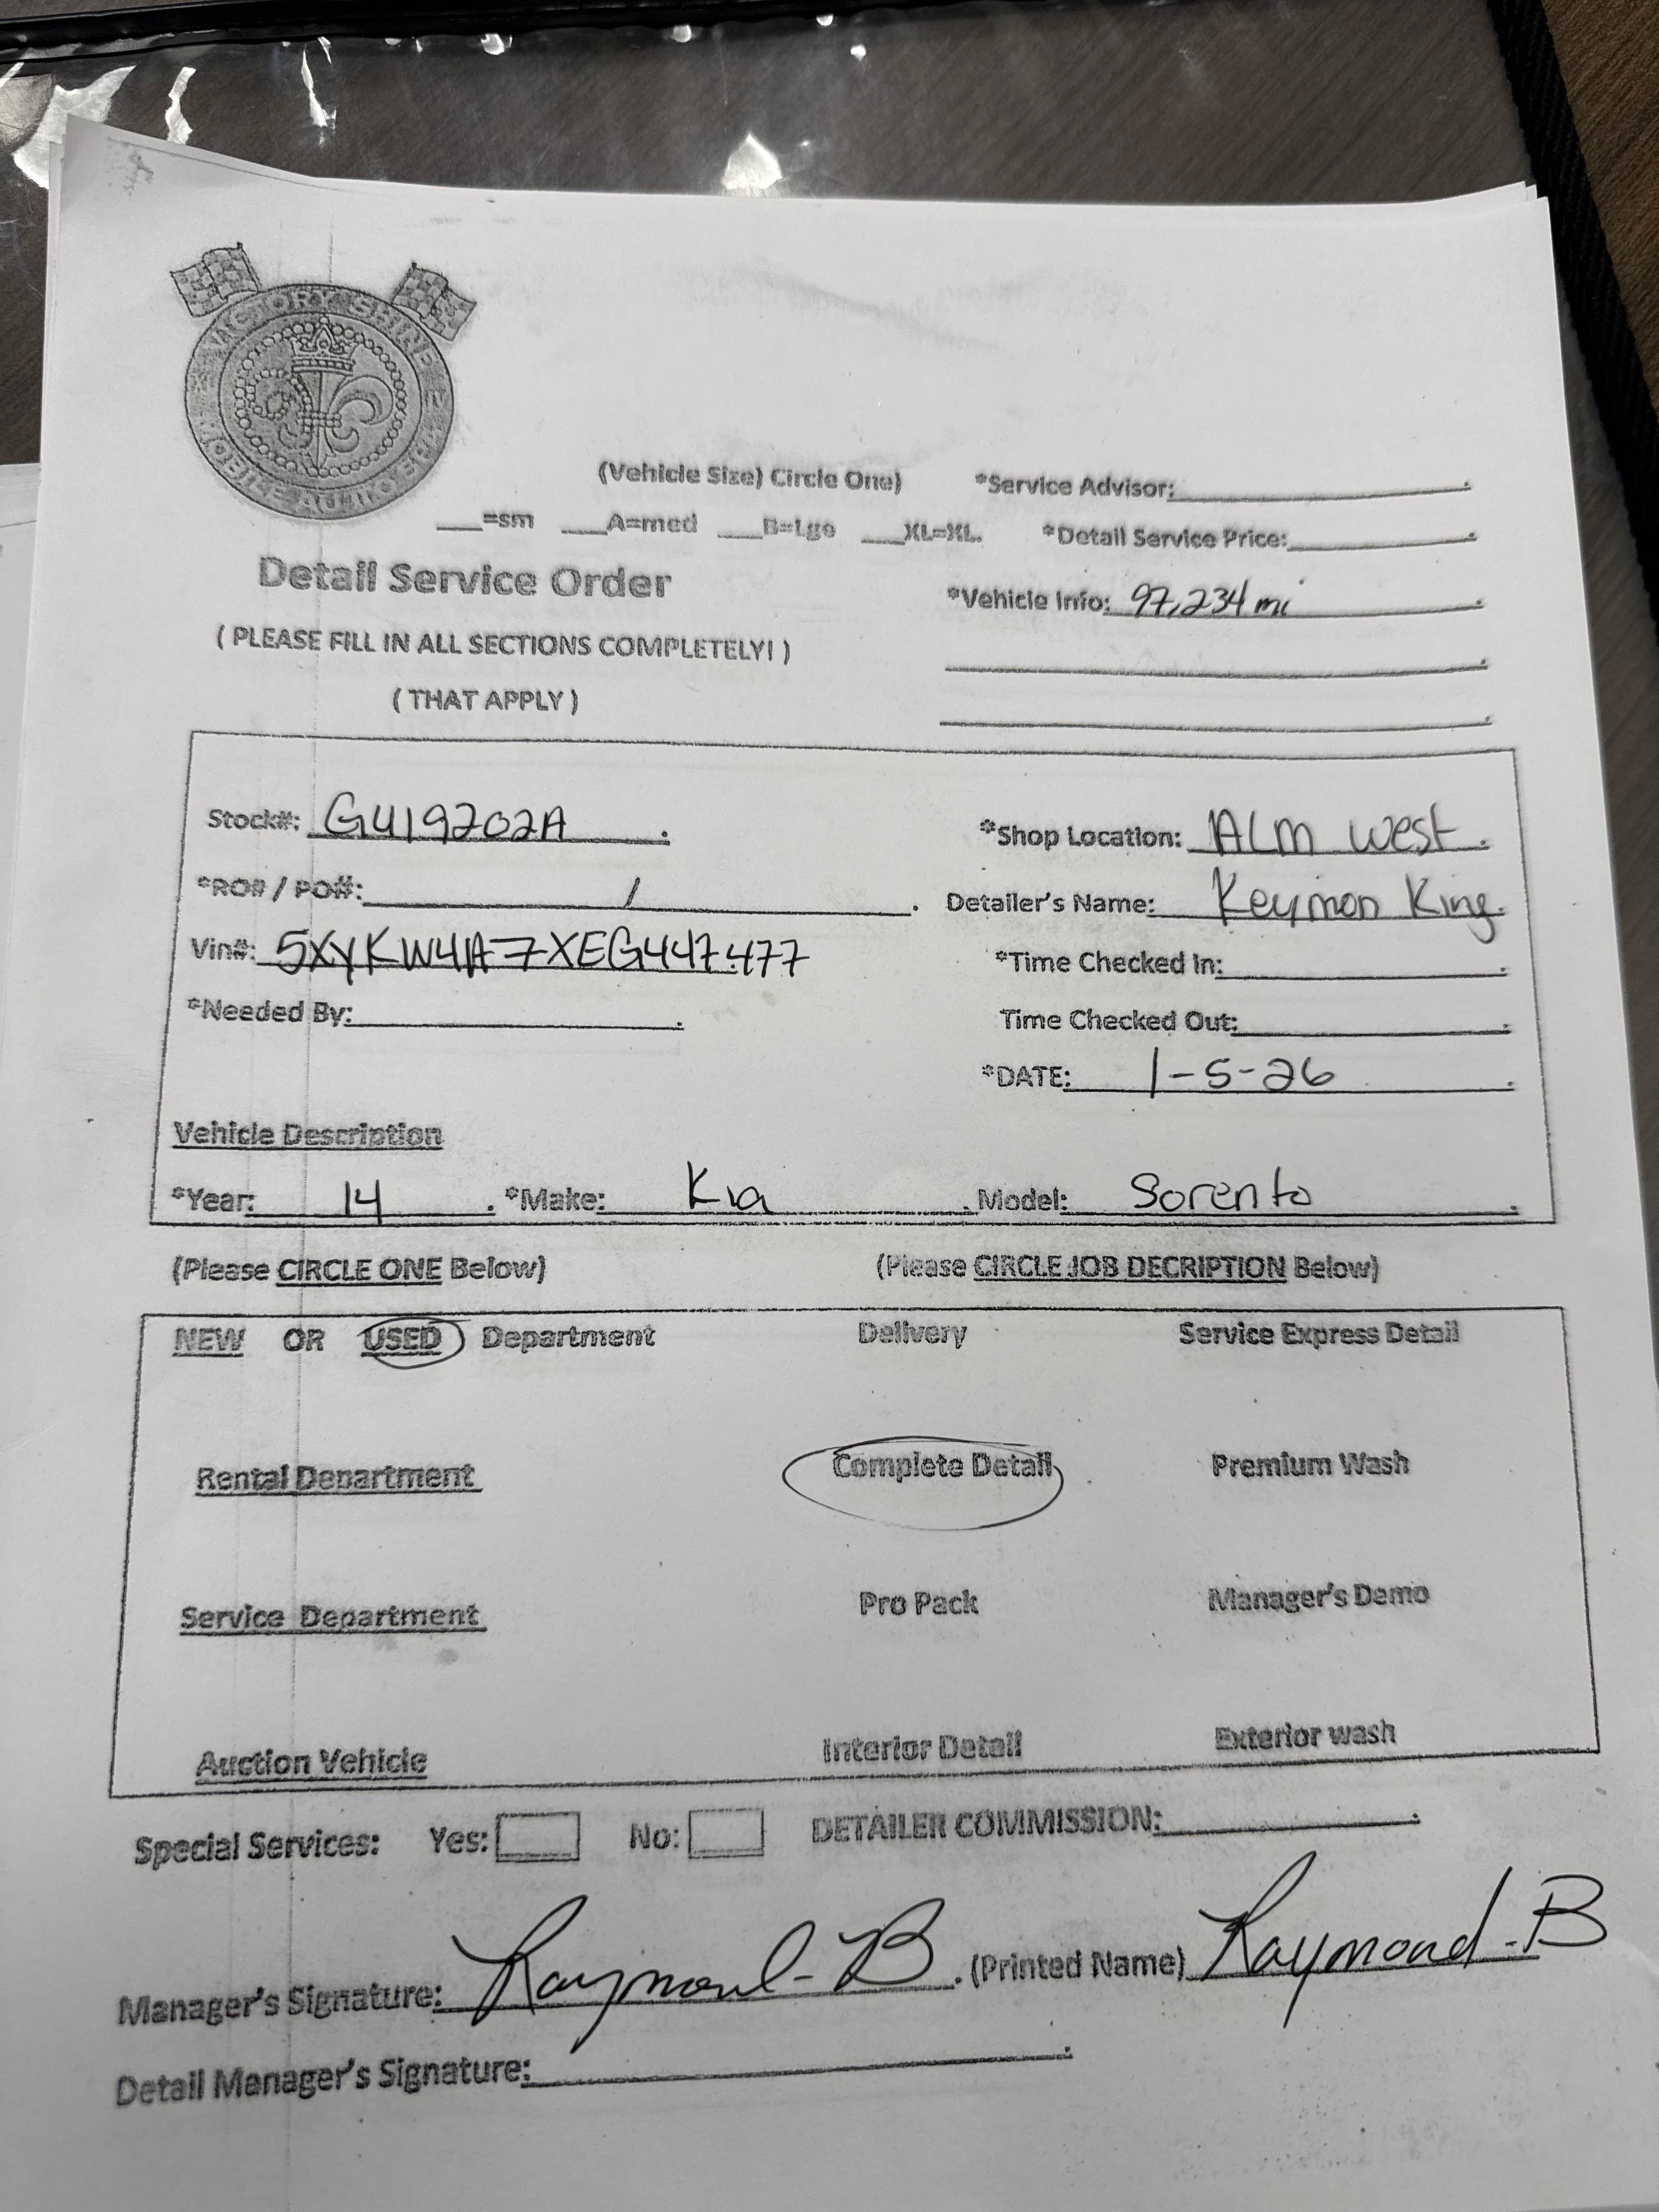 VICTORY SHINE
MOBILE AUTO
(Vehicle Size) Circle One)
*Service Advisor:
___=sm ___A=med ___B=Lge ___XL=XL.
*Detail Service Price:
Detail Service Order
*Vehicle Info: 97,234 mi
( PLEASE FILL IN ALL SECTIONS COMPLETELY! )
( THAT APPLY )
Stock#: G419202A
*Shop Location: ALM West
*RO# / PO#: /
Detailer's Name: Keymon King
Vin#: 5XYKW4A7XEG447477
*Time Checked In:
*Needed By:
Time Checked Out:
*DATE: 1-5-26
Vehicle Description
*Year: 14 *Make: Kia Model: Sorento
(Please CIRCLE ONE Below) (Please CIRCLE JOB DECRIPTION Below)
NEW OR USED Department Delivery Service Express Detail
Rental Department Complete Detail Premium Wash
Service Department Pro Pack Manager's Demo
Auction Vehicle Interior Detail Exterior wash
Special Services: Yes: No: DETAILER COMMISSION:
Manager's Signature: Raymond-B (Printed Name) Raymond-B
Detail Manager's Signature: